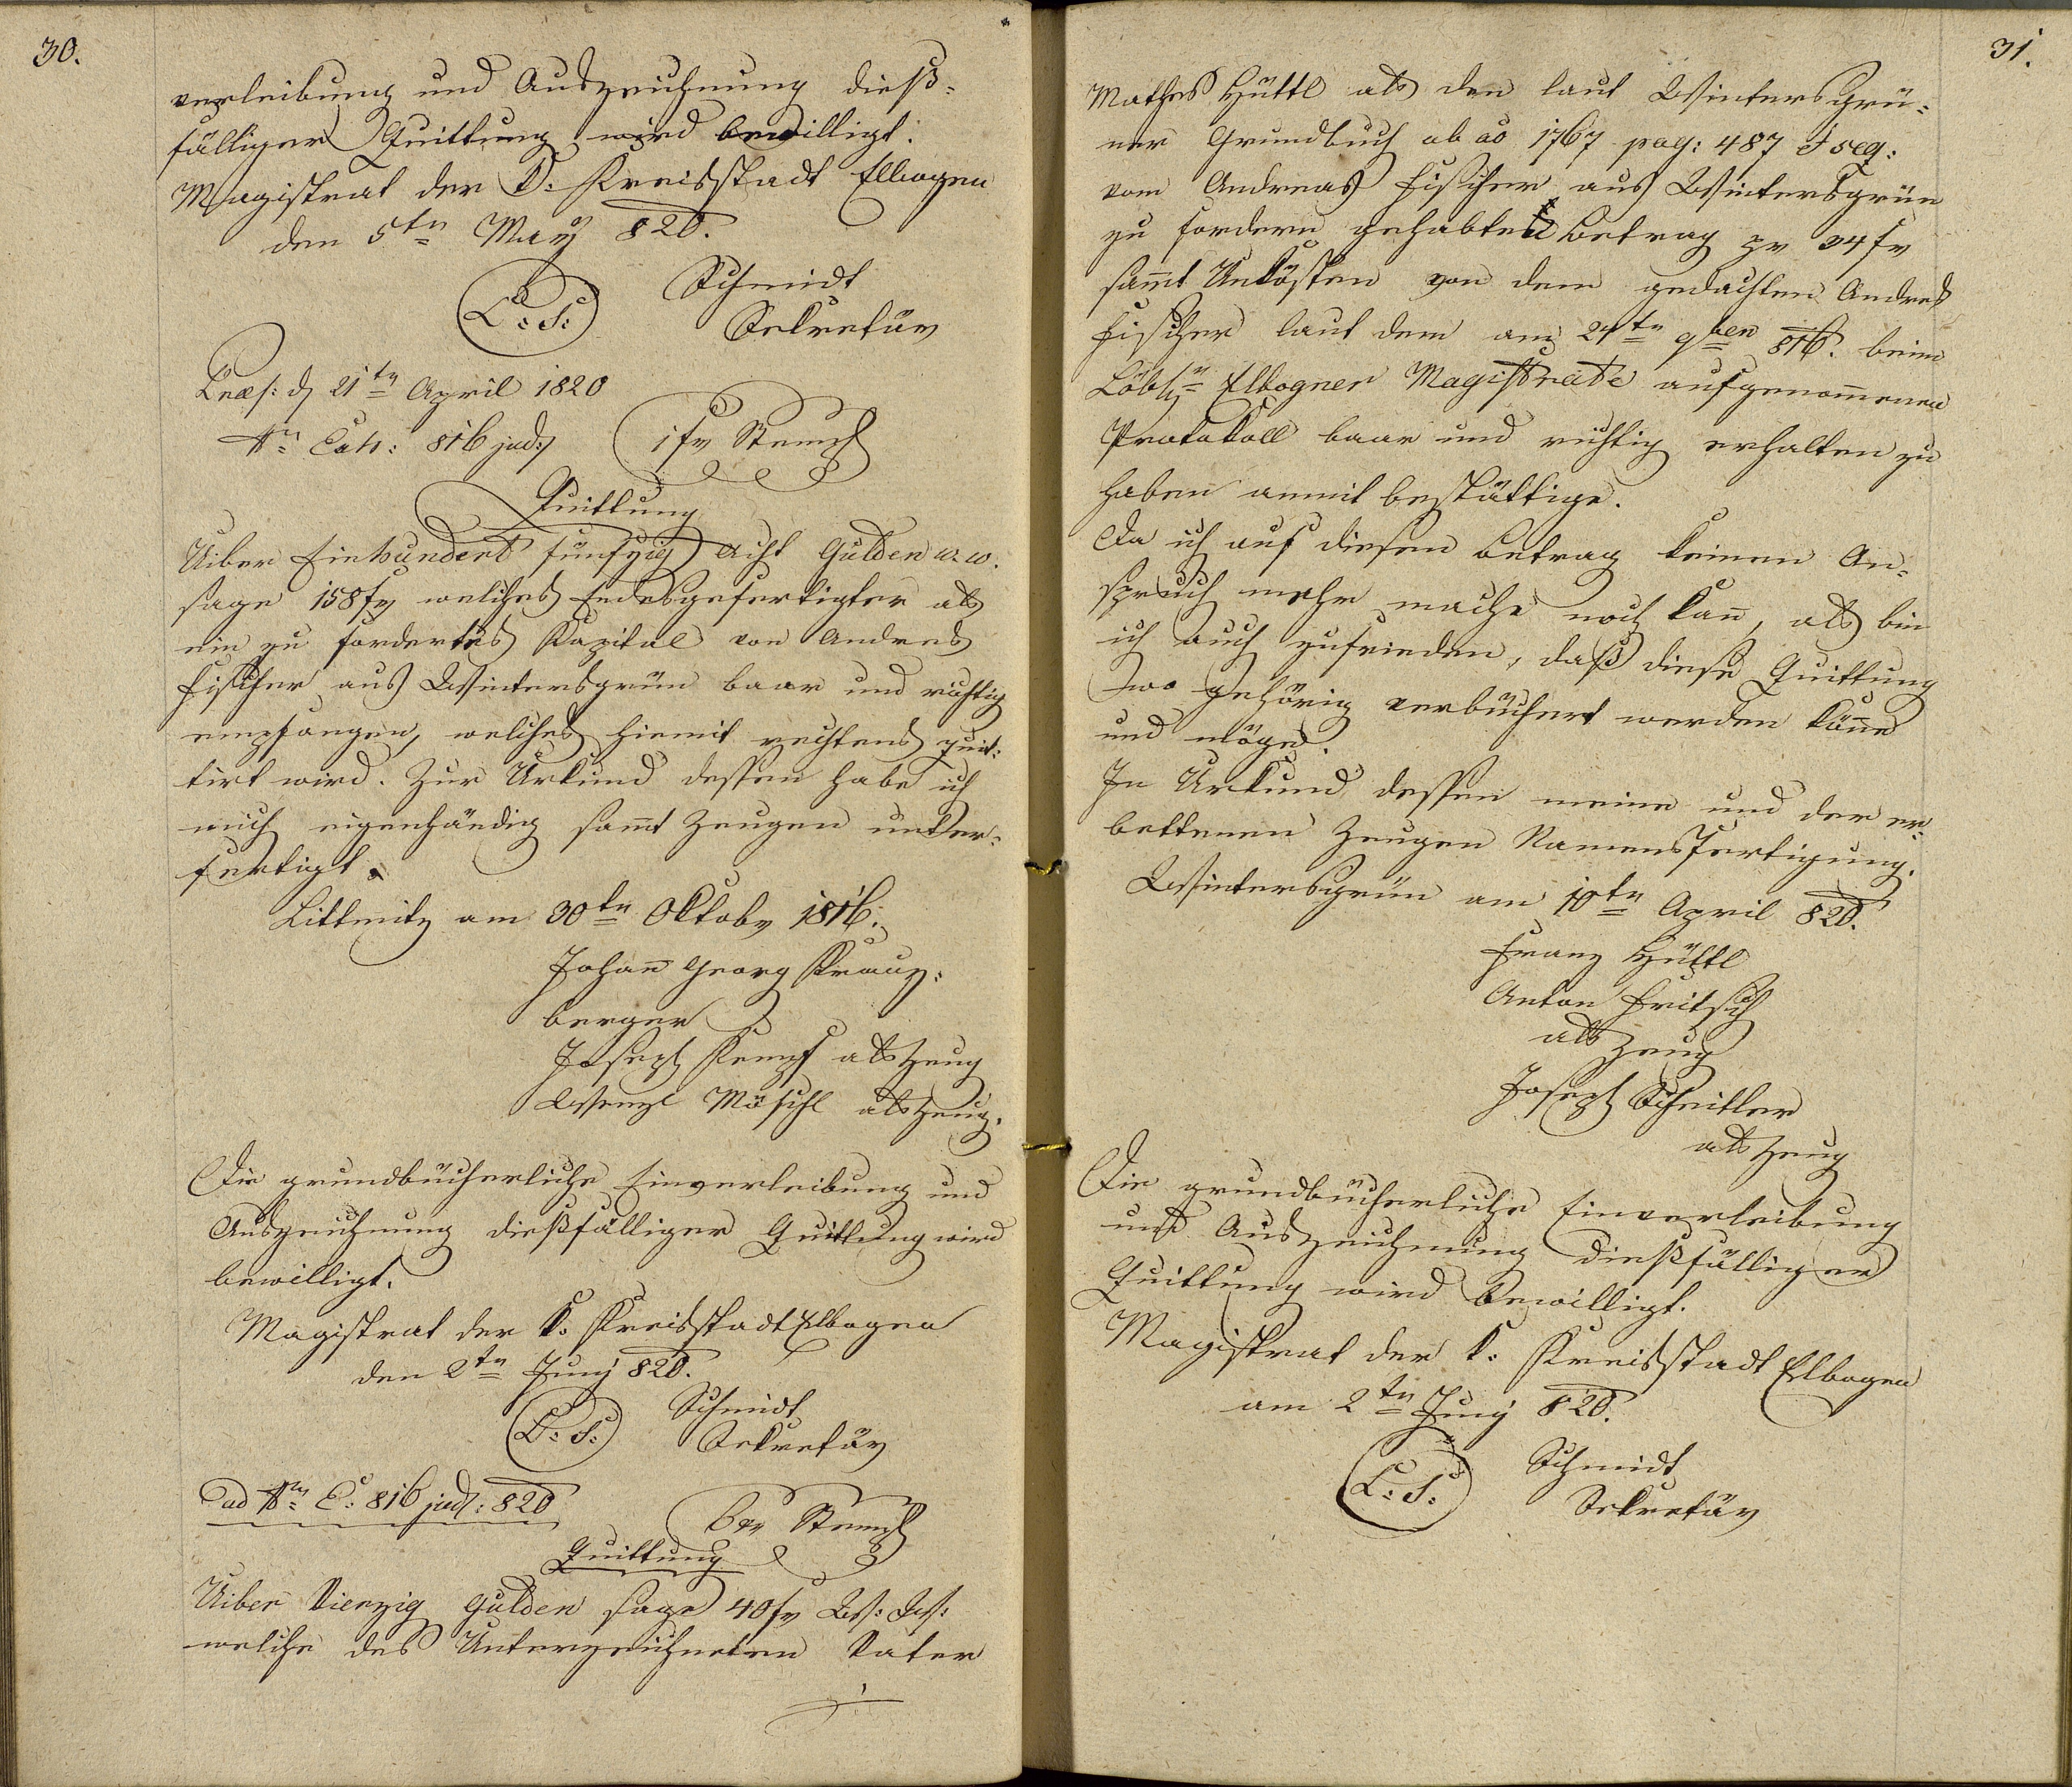 30.
verleibung und Auszeichnung dieß-
fälliger Quittung wird bewilligt.
Magistrat der K: Kreisstadt Elbogen
den 5tn May 820.
L: S:
Schmidt
Sekretär
Præs: d 21tn April 1820
Nr Exh: 816 jud:
1 fr Stempl
Quittung
Uiber Einhundert fünfzig Acht Gulden w. w.
sage 158 fr welches Endesgefertigter als
ein zu fordertes Kapital von Andres
Fischer aus Wintersgrün baar und richtig
empfangen, welches hiemit rechtens quit-
tirt wird. Zur Urkund dessen habe ich
mich eigenhändig samt Zeugen unter-
fertigt.
Littmitz am 30tn Oktobr 1816.
Johan Georg
berger
Joseph Kempf als Zeug
Wenzl Möschl als Zeug.
Die grundbücherliche Einverleibung und
Auszeichnung dießfälliger Quittung wird
bewilligt.
Magistrat der k. Kreisstadt Elbogen
den 2tn Juny 820.
L: S:
Schmidt
Sekretär
ad Nr E: 816 jud: 820
6 xr Stempl
Quittung
Uiber Vierzig Gulden sage 40 fr W: W:
welche des Unterzeichneten Vater
31.
Mathes Hüttl als den laut Wintersgrü-
ner Grundbuch ab ao 1767 pag: 487 et seq:
vom Andreas Fischer aus Wintersgrün
zu fordern gehabten Betrag pr 34 fr
samt Unkösten von dem gedachten Andres
Fischer laut dem am 27tn 9ben 816. beim
Löbl: Elbogner Magistrate aufgenommenen
Protokoll baar und richtig erhalten zu
haben anmit bestättige.
Da ich auf diesen Betrag keinen An-
spruch mehr mache noch kan, als bin
ich auch zufrieden, daß diese Quittung
wo gehörig verbüchert werden köne
und möge.
In Urkund dessen meine und der er-
bettenen Zeugen Namensfertigung.
Wintersgrün am 10tn April 820.
Franz Hüttl
Anton Fritsch
als Zeug
Joseph Scheitler
als Zeug
Die grundbücherliche Einverleibung
und Auszeichnung dießfälliger
Quittung wird bewilligt.
Magistrat der k: Kreisstadt Elbogen
am 2tn Juny 820.
L: S:
Schmidt
Sekretär